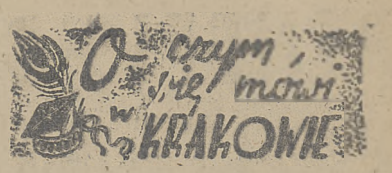 O czym
się mówi
w KRAKOWIE